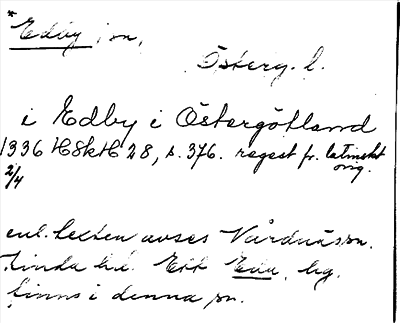 *Edby, sn,
Österg. l.
i Edby i Östergötland
1336 HSkH 28, s. 376. regest fr. latinskt orig.
2/4
enl. texten avses Vårdnäs sn.
Kinda hd. Ett Edu, by,
finns i denna sn.